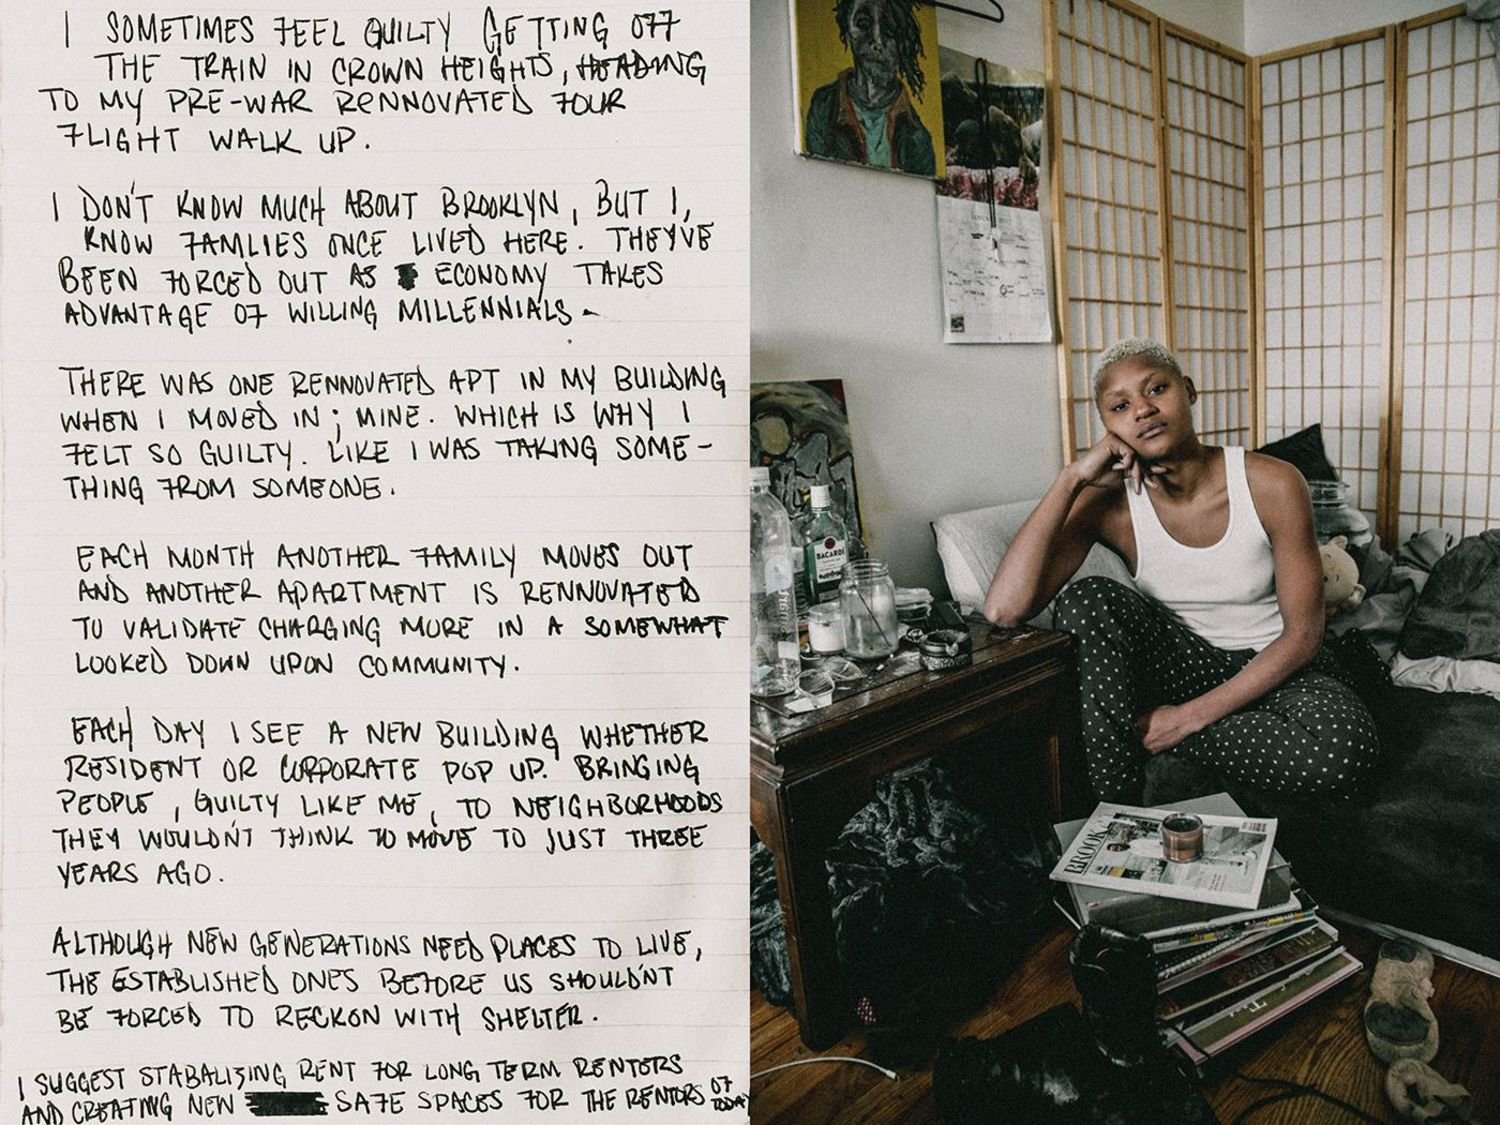 I SOMETIMES FEEL GUILTY GETTING OFF
THE TRAIN IN CROWN HEIGHTS, HEADING
TO MY PRE-WAR RENNOVATED FOUR
FLIGHT WALK UP.
I DON'T KNOW MUCH ABOUT BROOKLYN, BUT I,
KNOW FAMLIES ONCE LIVED HERE. THEY'VE
BEEN FORCED OUT AS ECONOMY TAKES
ADVANTAGE OF WILLING MILLENNIALS-
THERE WAS ONE RENNOVATED APT IN MY BUILDING
WHEN I MOVED IN; MINE. WHICH IS WHY I
FELT SO GUILTY. LIKE I WAS TAKING SOME-
THING FROM SOMEONE.
EACH MONTH ANOTHER FAMILY MOVES OUT
AND ANOTHER APARTMENT IS RENNOVATED
TO VALIDATE CHARGING MORE IN A SOMEWHAT
LOOKED DOWN UPON COMMUNITY.
EACH DAY I SEE A NEW BUILDING WHETHER
RESIDENT OR CORPORATE POP UP. BRINGING
PEOPLE, GUILTY LIKE ME, TO NEIGHBORHOODS
THEY WOULDN'T THINK TO MOVE TO JUST THREE
YEARS AGO.
ALTHOUGH NEW GENERATIONS NEED PLACES TO LIVE,
THE ESTABLISHED ONES BEFORE US SHOULDN'T
BE FORCED TO RECKON WITH SHELTER.
I SUGGEST STABALIZING RENT FOR LONG TERM RENTORS
AND CREATING NEW SAFE SPACES FOR THE RENTORS OF
TODAY
BACARDI
BROOK